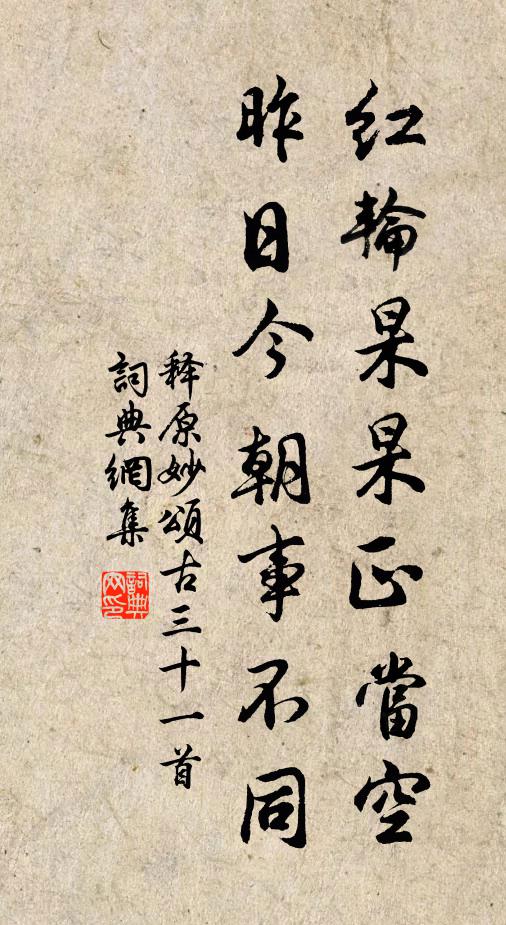 紅輪杲杲正當空
昨日今朝事不同
释原妙頌古三十一首
詞典網集
詞典網印